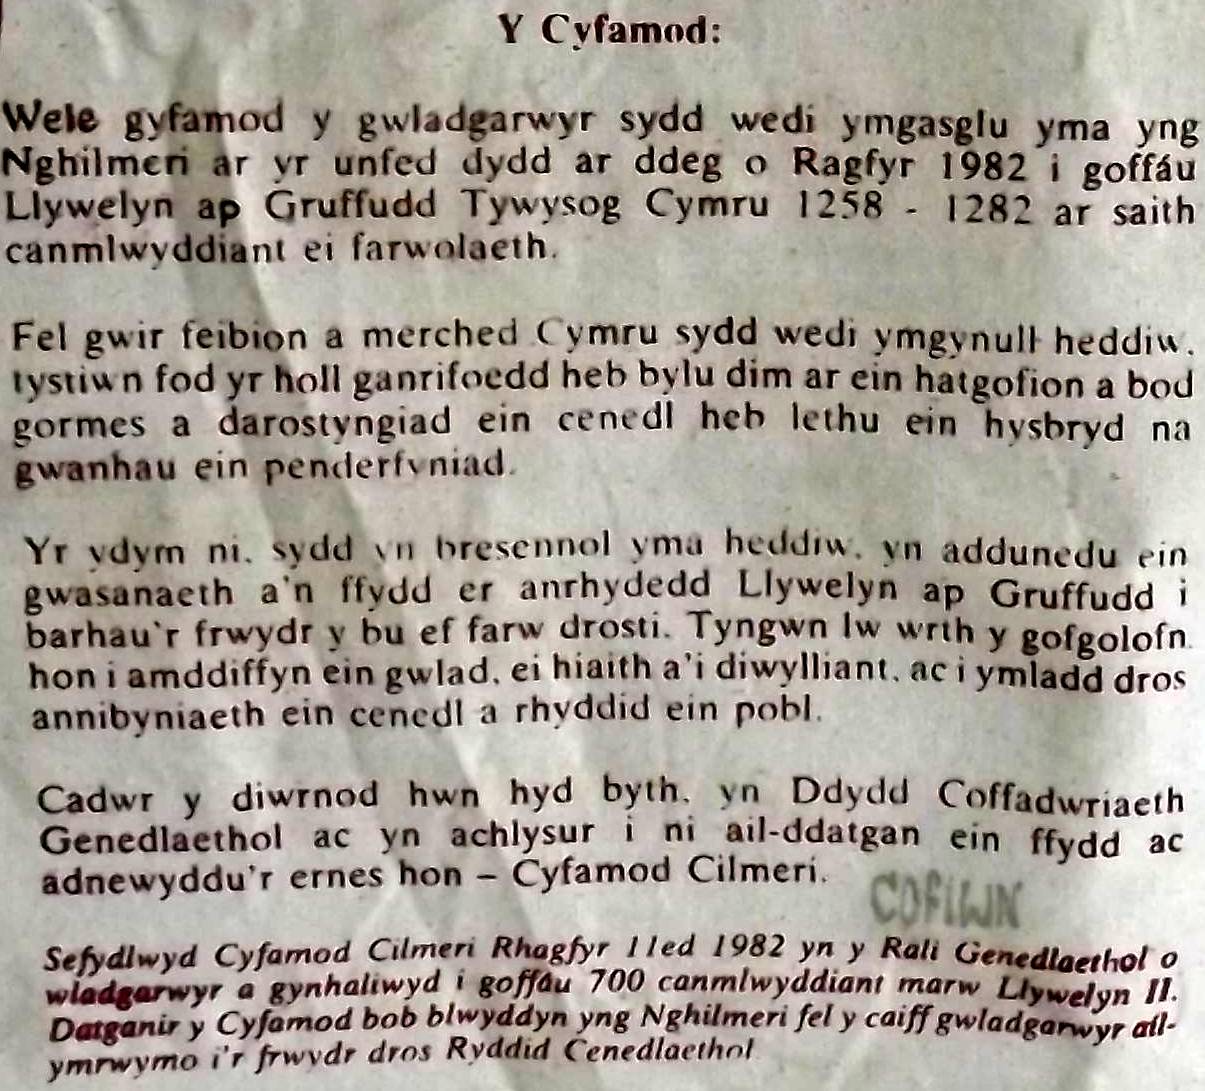 Y Cyfamod:
Wele gyfamod y gwladgarwyr sydd wedi ymgasglu yma yng
Nghilmeri ar yr unfed dydd ar ddeg o Ragfyr 1982 i goffáu
Llywelyn ap Gruffudd Tywysog Cymru 1258 - 1282 ar saith
canmlwyddiant ei farwolaeth.
Fel gwir feibion a merched Cymru sydd wedi ymgynull heddiw,
tystiwn fod yr holl ganrifoedd heb bylu dim ar ein hatgofion a bod
gormes a darostyngiad ein cenedl heb lethu ein hysbryd na
gwanhau ein penderfyniad.
Yr ydym ni, sydd yn bresennol yma heddiw, yn addunedu ein
gwasanaeth a'n ffydd er anrhydedd Llywelyn ap Gruffudd i
barhau'r frwydr y bu ef farw drosti. Tyngwn lw wrth y gofgolofn
hon i amddiffyn ein gwlad, ei hiaith a'i diwylliant, ac i ymladd dros
annibyniaeth ein cenedl a rhyddid ein pobl.
Cadwr y diwrnod hwn hyd byth, yn Ddydd Coffadwriaeth
Genedlaethol ac yn achlysur i ni ail-ddatgan ein ffydd ac
adnewyddu'r ernes hon – Cyfamod Cilmeri.
COFIWN
Sefydlwyd Cyfamod Cilmeri Rhagfyr 11ed 1982 yn y Rali Genedlaethol o
wladgarwyr a gynhaliwyd i goffáu 700 canmlwyddiant marw Llywelyn II.
Datganir y Cyfamod bob blwyddyn yng Nghilmeri fel y caiff gwladgarwyr ail-
ymrwymo i'r frwydr dros Ryddid Cenedlaethol